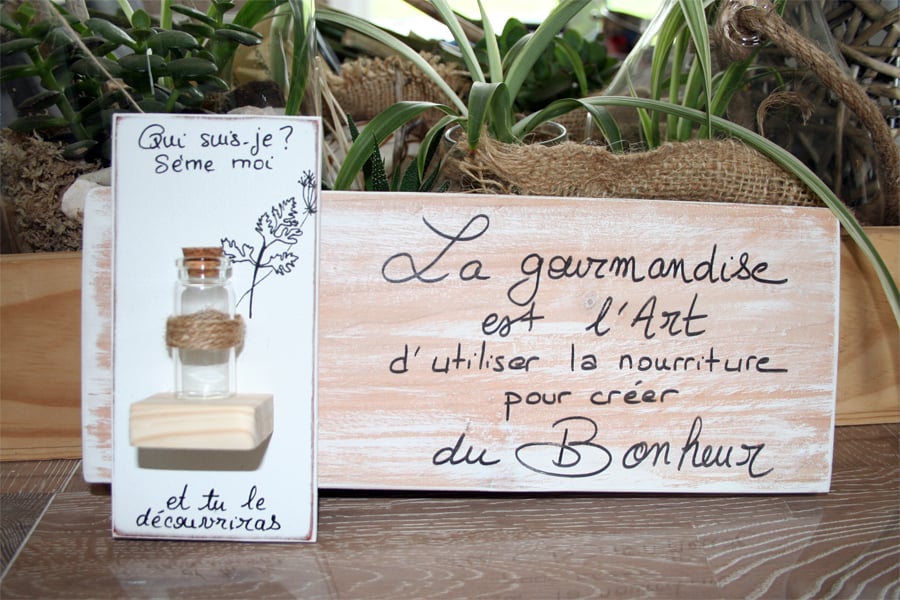 Qui suis-je ?
Sème moi
et tu le
découvriras
La gourmandise
est l'Art
d'utiliser la nourriture
pour créer
du Bonheur